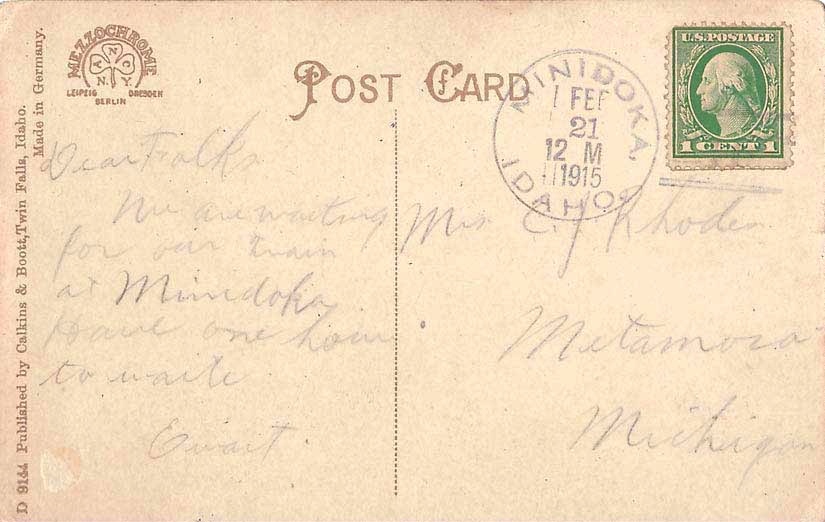 MEZZOCHROME
A N C
N. Y.
LEIPZIG DRESDEN
BERLIN
POST CARD
MINIDOKA,
FEB
21
12 M
1915
IDAHO.
U.S. POSTAGE
1 CENT 1
D 9144 Published by Calkins & Boott, Twin Falls, Idaho.
Made in Germany.
Dear Folks
We are waiting
for our train
at Minidoka
Have one hour
to waite
Ewart
Mrs C. J Rhodes
Metamora
Michigan